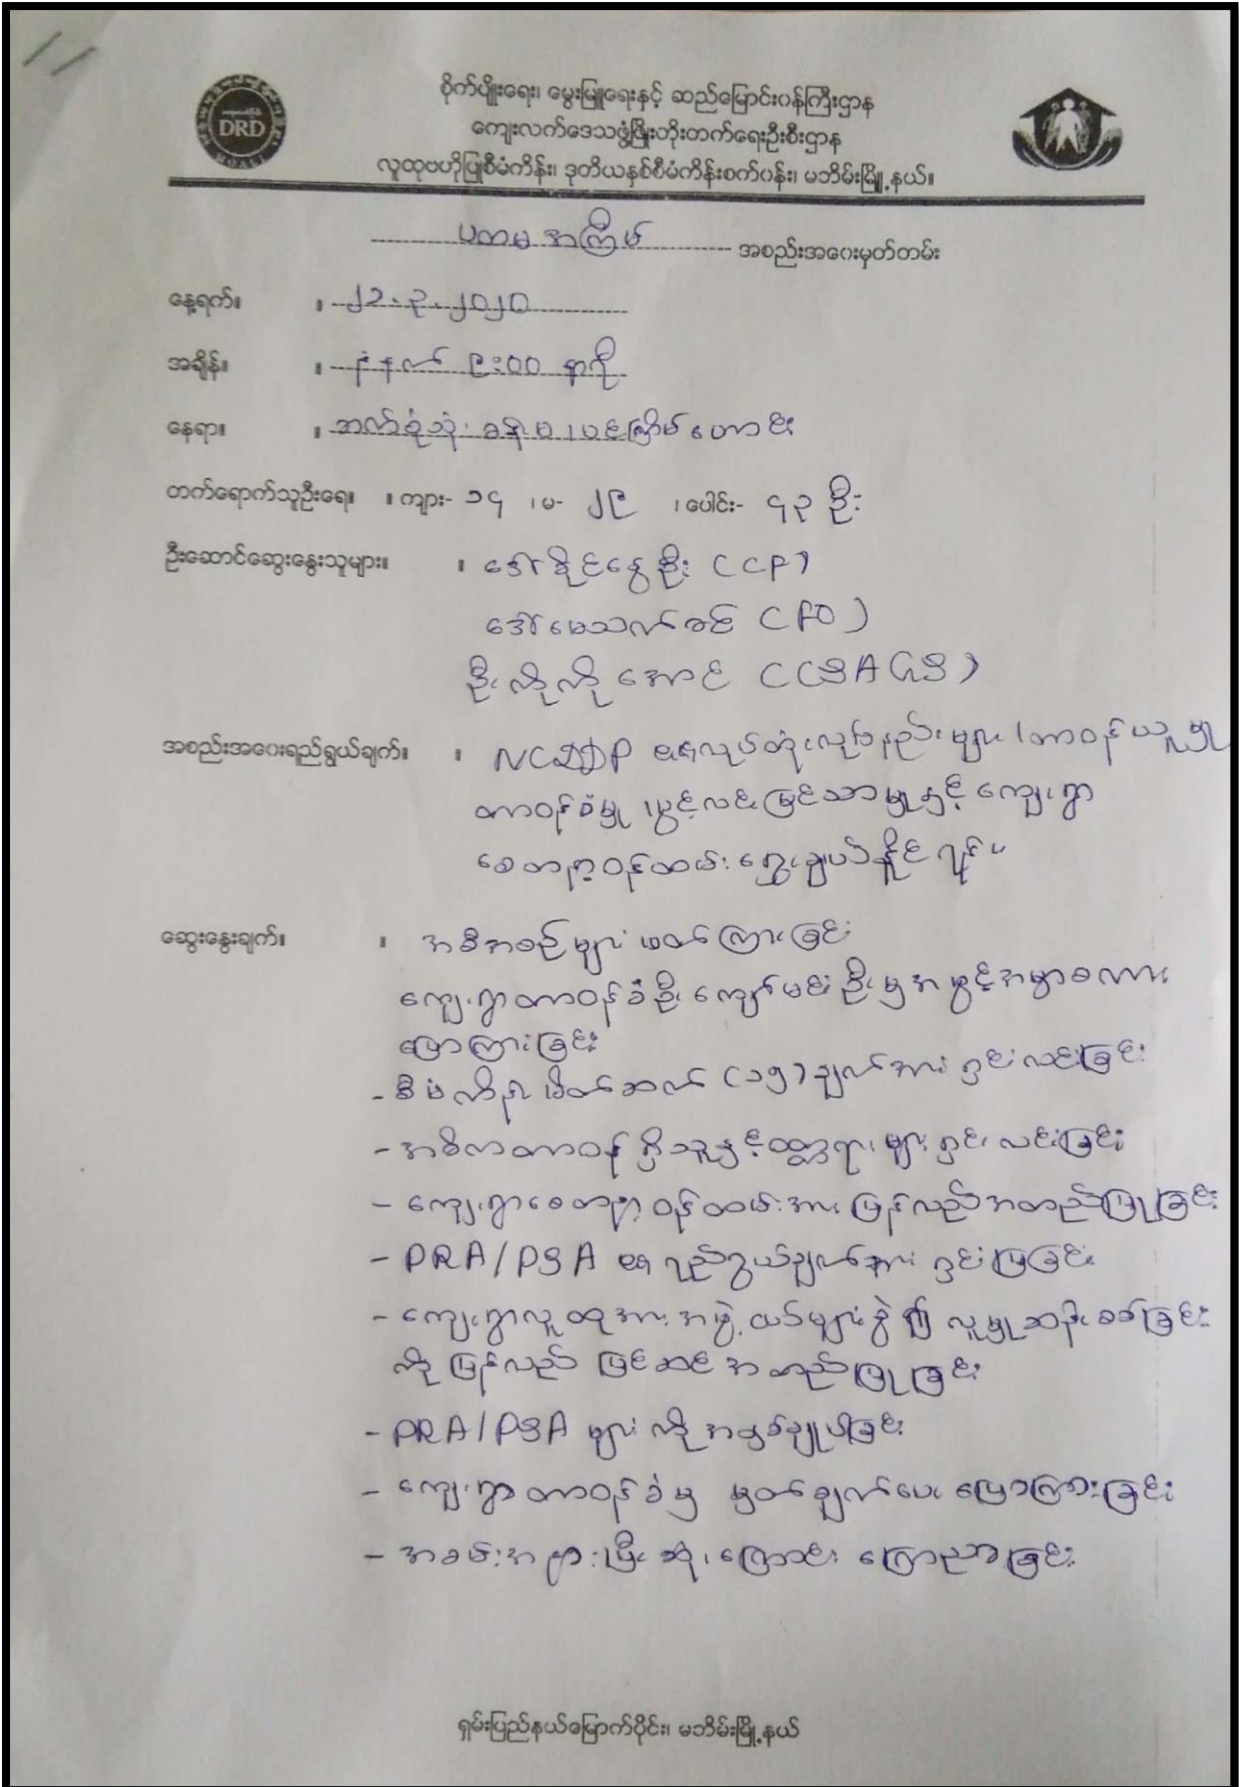 စိုက်ပျိုးရေး၊ မွေးမြူရေးနှင့် ဆည်မြောင်းဝန်ကြီးဌာန
DRD
ကျေးလက်ဒေသဖွံ့ဖြိုးတိုးတက်ရေးဦးစီးဌာန
လူထုဗဟိုပြုစီမံကိန်း၊ ဒုတိယနှစ်စီမံကိန်းစက်ဝန်း၊ မဘိမ်းမြို့နယ်။
ပထမအကြိမ် အစည်းအဝေးမှတ်တမ်း
နေ့ရက်။ ။ ၂၁.၃.၂၀၂၀
အချိန်။ ။ နံနက် ၉:၀၀ နာရီ
နေရာ။ ။ ဘုန်းကြီးကျောင်း
တက်ရောက်သူဦးရေ။ ။ ကျား- ၁၄ ၊ မ- ၂၉ ၊ ပေါင်း- ၄၃ ဦး
ဦးဆောင်ဆွေးနွေးသူများ။ ။ ဒေါ်ခိုင်နွေဦး (CCF)
ဒေါ်မေသက်ခင် (FO)
ဦးကိုကိုအောင် (CSAGS)
အစည်းအဝေးရည်ရွယ်ချက်။ ။ NCDDP ၏ လုပ်ထုံးလုပ်နည်းများ၊ တာဝန်ယူမှု
တာဝန်ခံမှု ပွင့်လင်းမြင်သာမှုနှင့် ကျေးရွာ
စေတနာ့ဝန်ထမ်း ရွေးချယ်နိုင်ရန်။
ဆွေးနွေးချက်။ ။ အစီအစဉ်များ ဖတ်ကြားခြင်း
ကျေးရွာတာဝန်ခံ ဦးကျော်မင်းဦးမှ အဖွင့်အမှာစကား
ပြောကြားခြင်း
- စီမံကိန်း မိတ်ဆက် (၁၅) ချက်အား ရှင်းလင်းခြင်း
- အဓိကတာဝန်ရှိသူနှင့် ဝတ္တရားများ ရှင်းလင်းခြင်း
- ကျေးရွာစေတနာ့ဝန်ထမ်းအား ပြန်လည်အတည်ပြုခြင်း
- PRA/PSA ၏ ရည်ရွယ်ချက်အား ရှင်းပြခြင်း
- ကျေးရွာလူထုအား အဖွဲ့ငယ်များခွဲ၍ လူမှုဆန်းစစ်ခြင်း
ကို ပြန်လည် ပြင်ဆင်အတည်ပြုခြင်း
- PRA/PSA များကို အနှစ်ချုပ်ခြင်း
- ကျေးရွာတာဝန်ခံမှ မှတ်ချက်ပေး ပြောကြားခြင်း
- အခမ်းအနားပြီးဆုံးကြောင်း ကြေညာခြင်း
ရှမ်းပြည်နယ်မြောက်ပိုင်း၊ မဘိမ်းမြို့နယ်